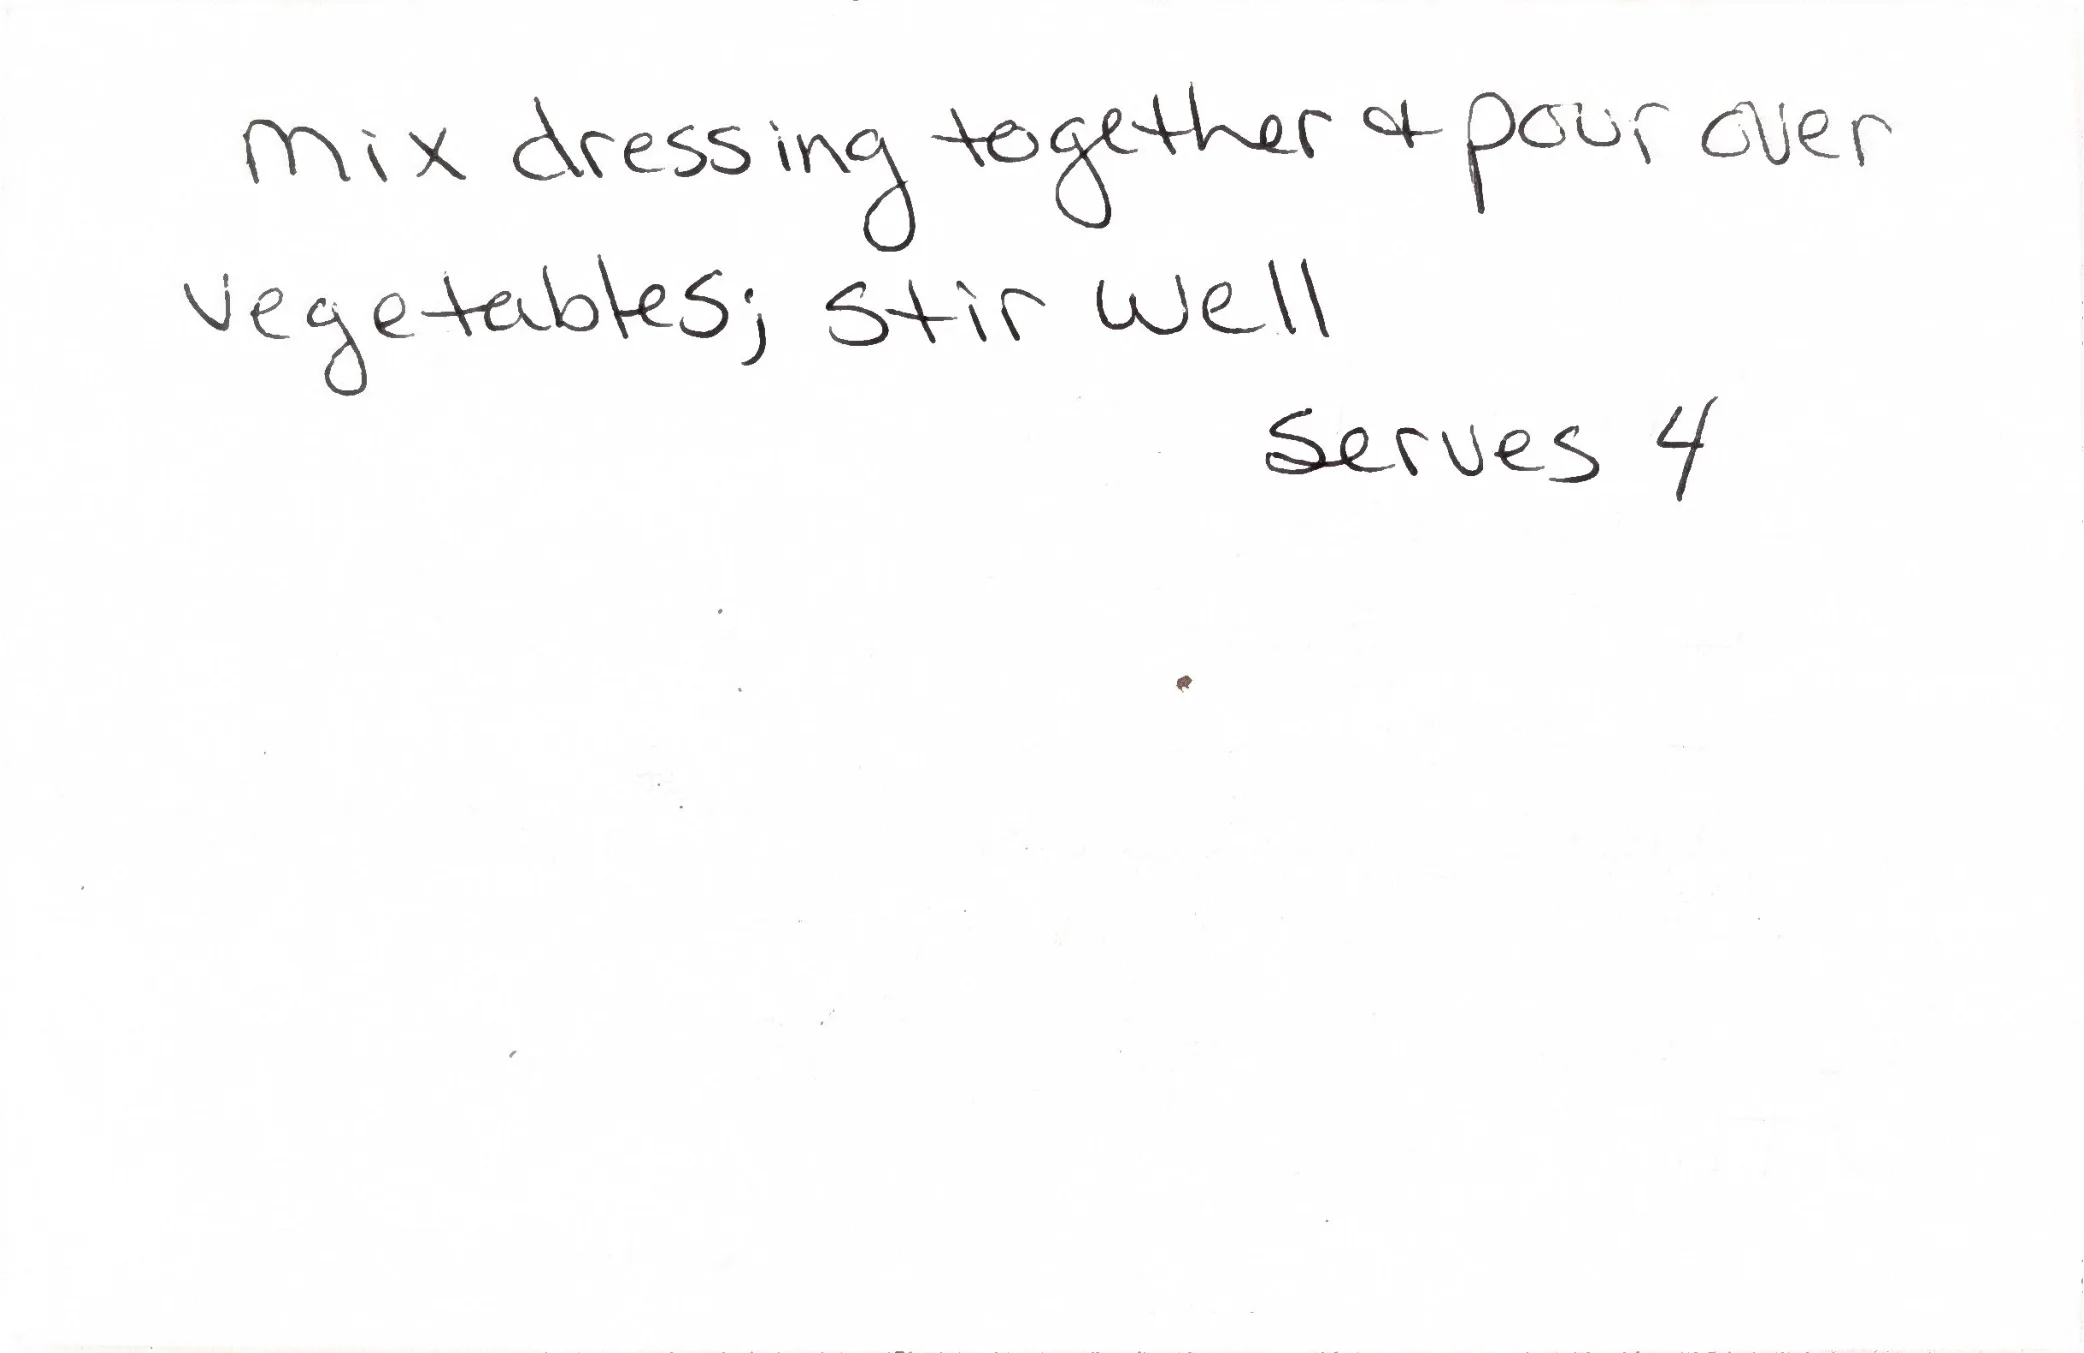 mix dressing together & pour over
vegetables; stir well
Serves 4